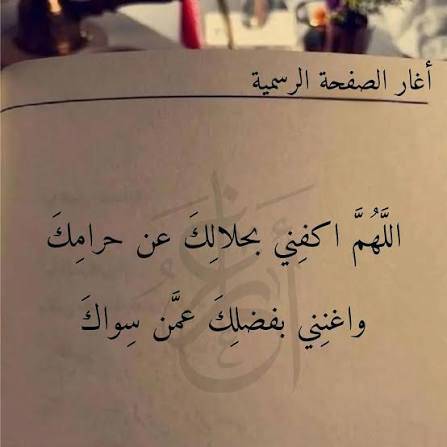 أغار الصفحة الرسمية
اللَّهُمَّ اكفِني بحلالِكَ عن حرامِكَ
واغنِني بفضلِكَ عمَّن سِواكَ